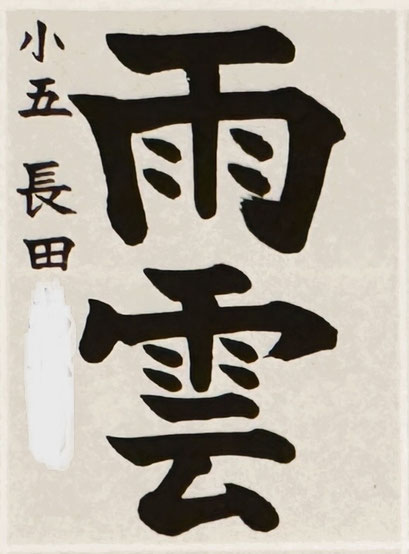 雨雲
小五 長田